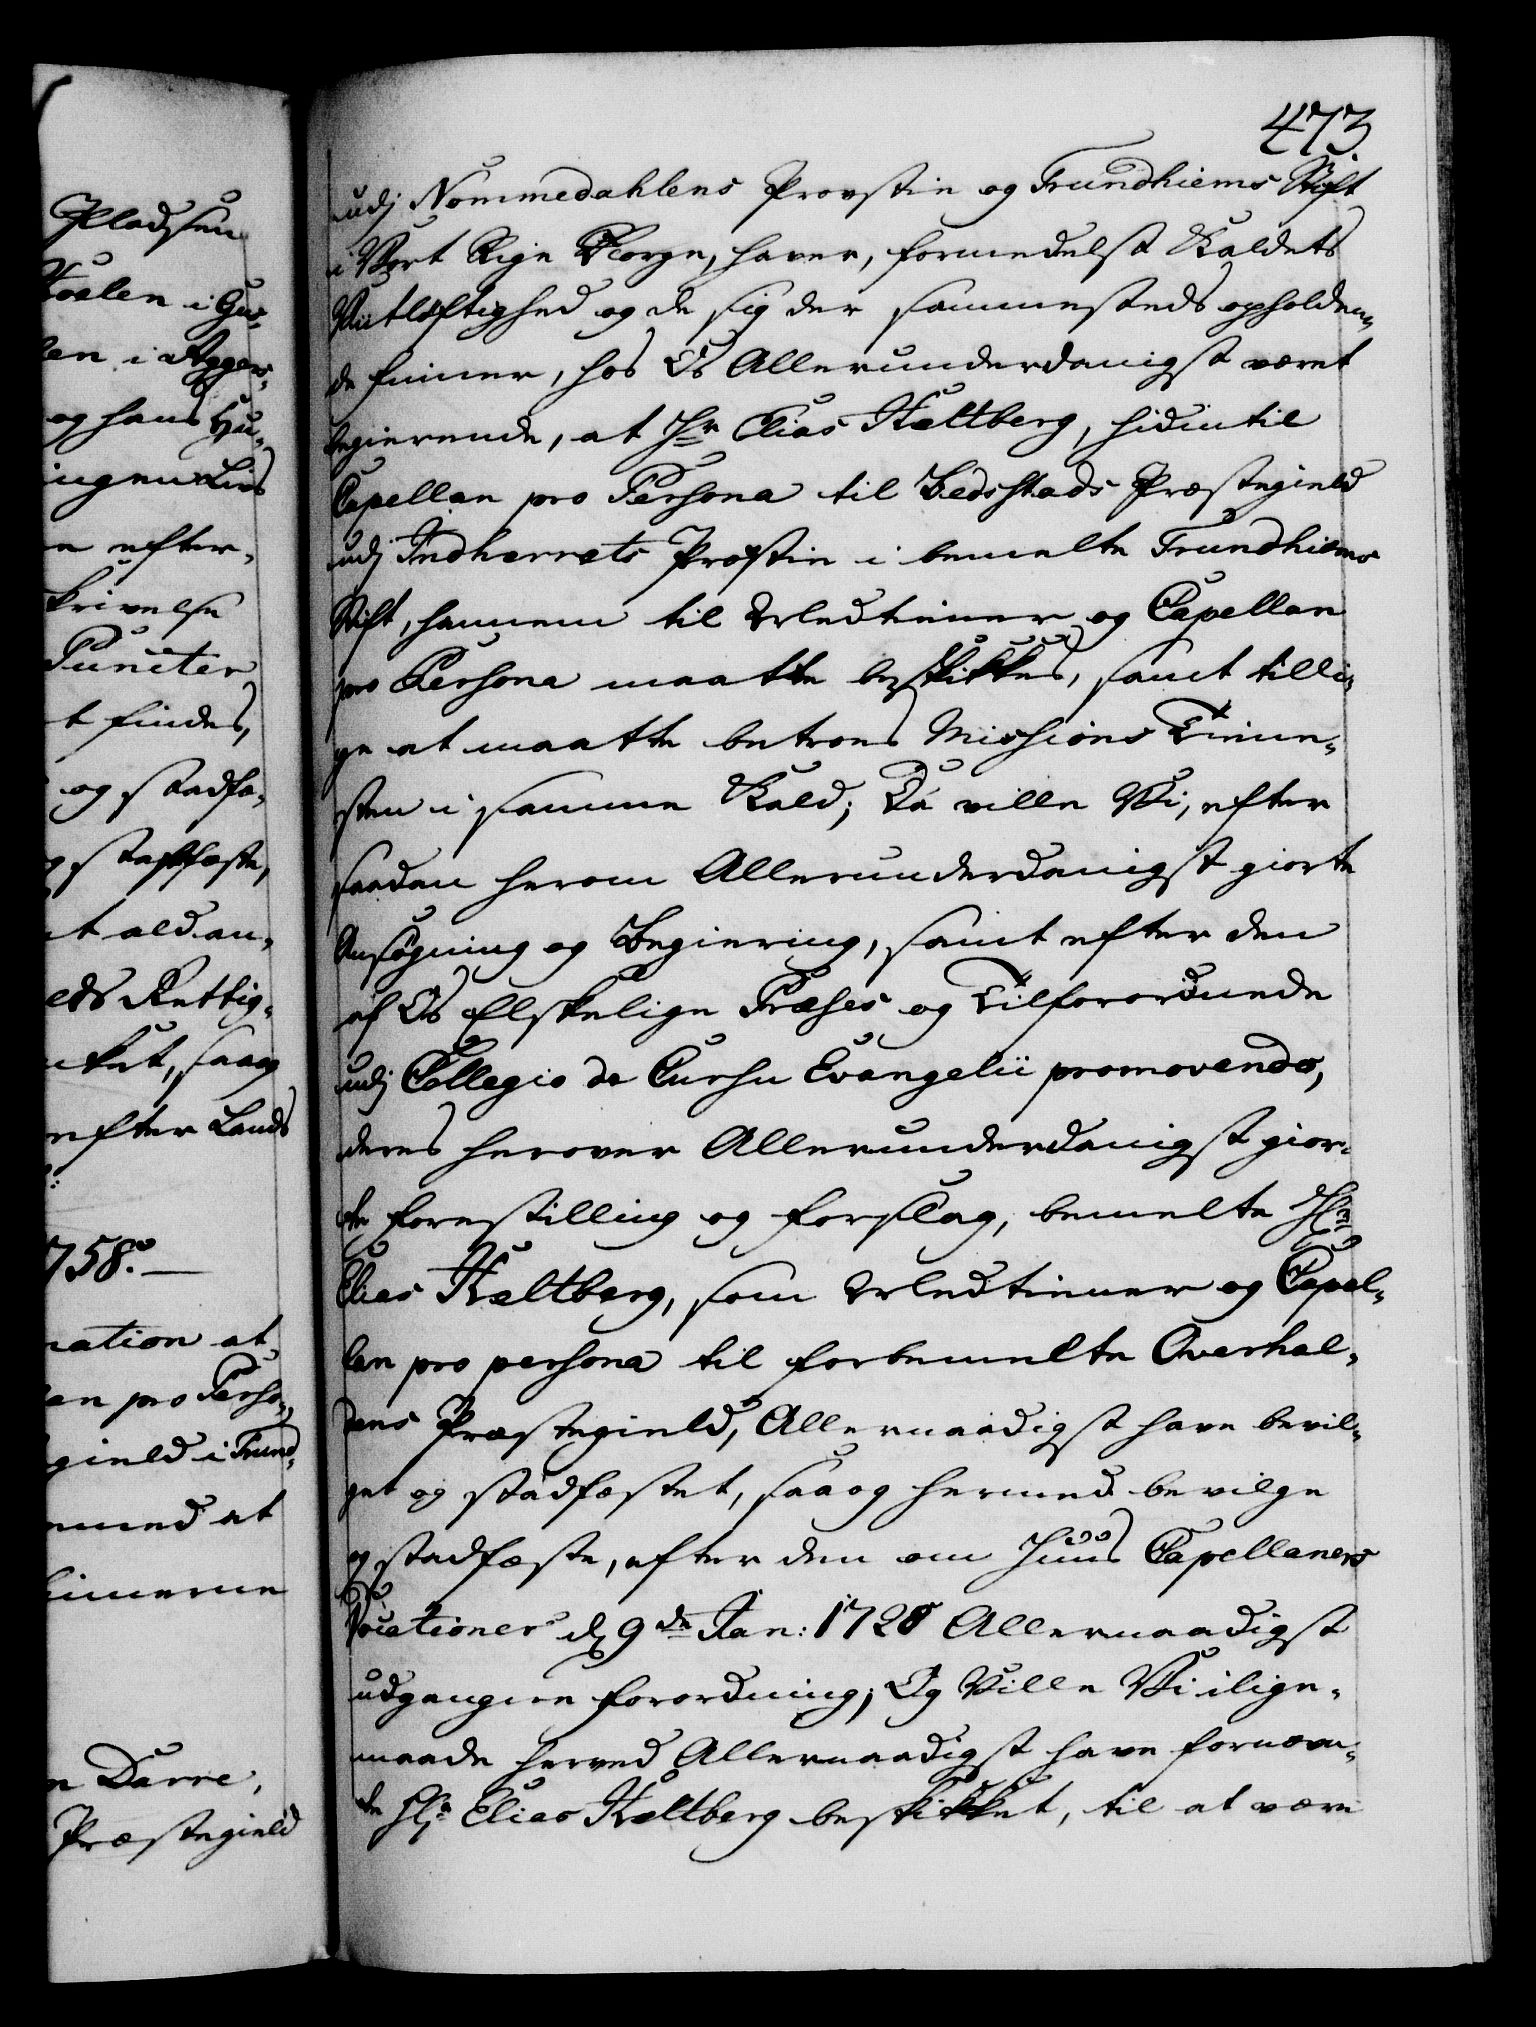 Pladsen
Foslen i Gus-
len i Agger-
og hans Hu-
ingen Lens
n efter-
skrivelse
Puncter
t findes,
og stadfæ-
g stadfæste,
t ald an-
eds Rettig-
ket, saa og
efter Lands
758.
nation at
an pro Perso-
gield i Trund-
emed at
Finnerne
n Darre,
Præstegield
473
udj Nommedahlens Provstie og Trundhiems Stift
i Vort Rige Norge, haver, formedelst Kaldets
Viitløftighed og de sig der sammesteds opholden-
de Finner, hos Os Allerunderdanigst været
begierende, at Hr Elias Heltberg, hidintil
Capellan pro Persona til Bedsstads Præstegield
udj Indherrets Provstie i bemelte Trundhiems
Stift, hannem til Ordtiener og Capellan
pro Persona maatte beskikkes, samt tilli-
ge at maatte betroes Missions Tienne-
sten i samme Kald; Da ville Vi, efter
saadan herom Allerunderdanigst giorte
Ansøgning og Begiering, samt efter den
af Os Elskelige Præses og Tilforordnede
udj Collegio de Cursu Evangelii promovendo,
deres herover Allerunderdanigst gior-
te Forestilling og Forslag, bemelte Hr
Elias Heltberg, som Ordtiener og Capel-
lan pro persona til forbemelte Overhal-
dens Præstegield, Allernaadigst have bevil-
get og stadfæstet, saa og hermed bevilge
og stadfæste, efter den om Huus Capellaners
Vocationer d. 9de Jan: 1728 Allernaadigst
udgangne Forordning; Og Ville Vi i lige-
maade herved Allernaadigst have fornevn-
te Hr Elias Heltberg beskikket, til at være